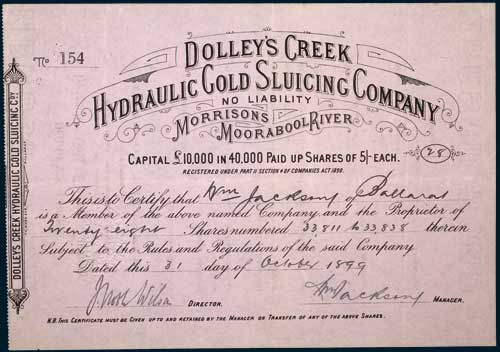 No 154
DOLLEY'S CREEK
HYDRAULIC GOLD SLUICING COMPANY
NO LIABILITY
MORRISONS
MOORABOOL RIVER
CAPITAL £10,000 IN 40,000 PAID UP SHARES OF 5/- EACH.
28
REGISTERED UNDER PART II SECTION 4 OF COMPANIES ACT 1890.
This is to Certify that Wm Jackson of Ballarat
is a Member of the above named Company and the Proprietor of
Twenty eight Shares numbered 33,811 to 33,838 therein
Subject to the Rules and Regulations of the said Company.
Dated this 31 day of October 1899
J Noel Wilson DIRECTOR. Wm Jackson MANAGER.
N.B. THIS CERTIFICATE MUST BE GIVEN UP TO AND RETAINED BY THE MANAGER ON TRANSFER OF ANY OF THE ABOVE SHARES.
DOLLEY'S CREEK HYDRAULIC GOLD SLUICING CO.